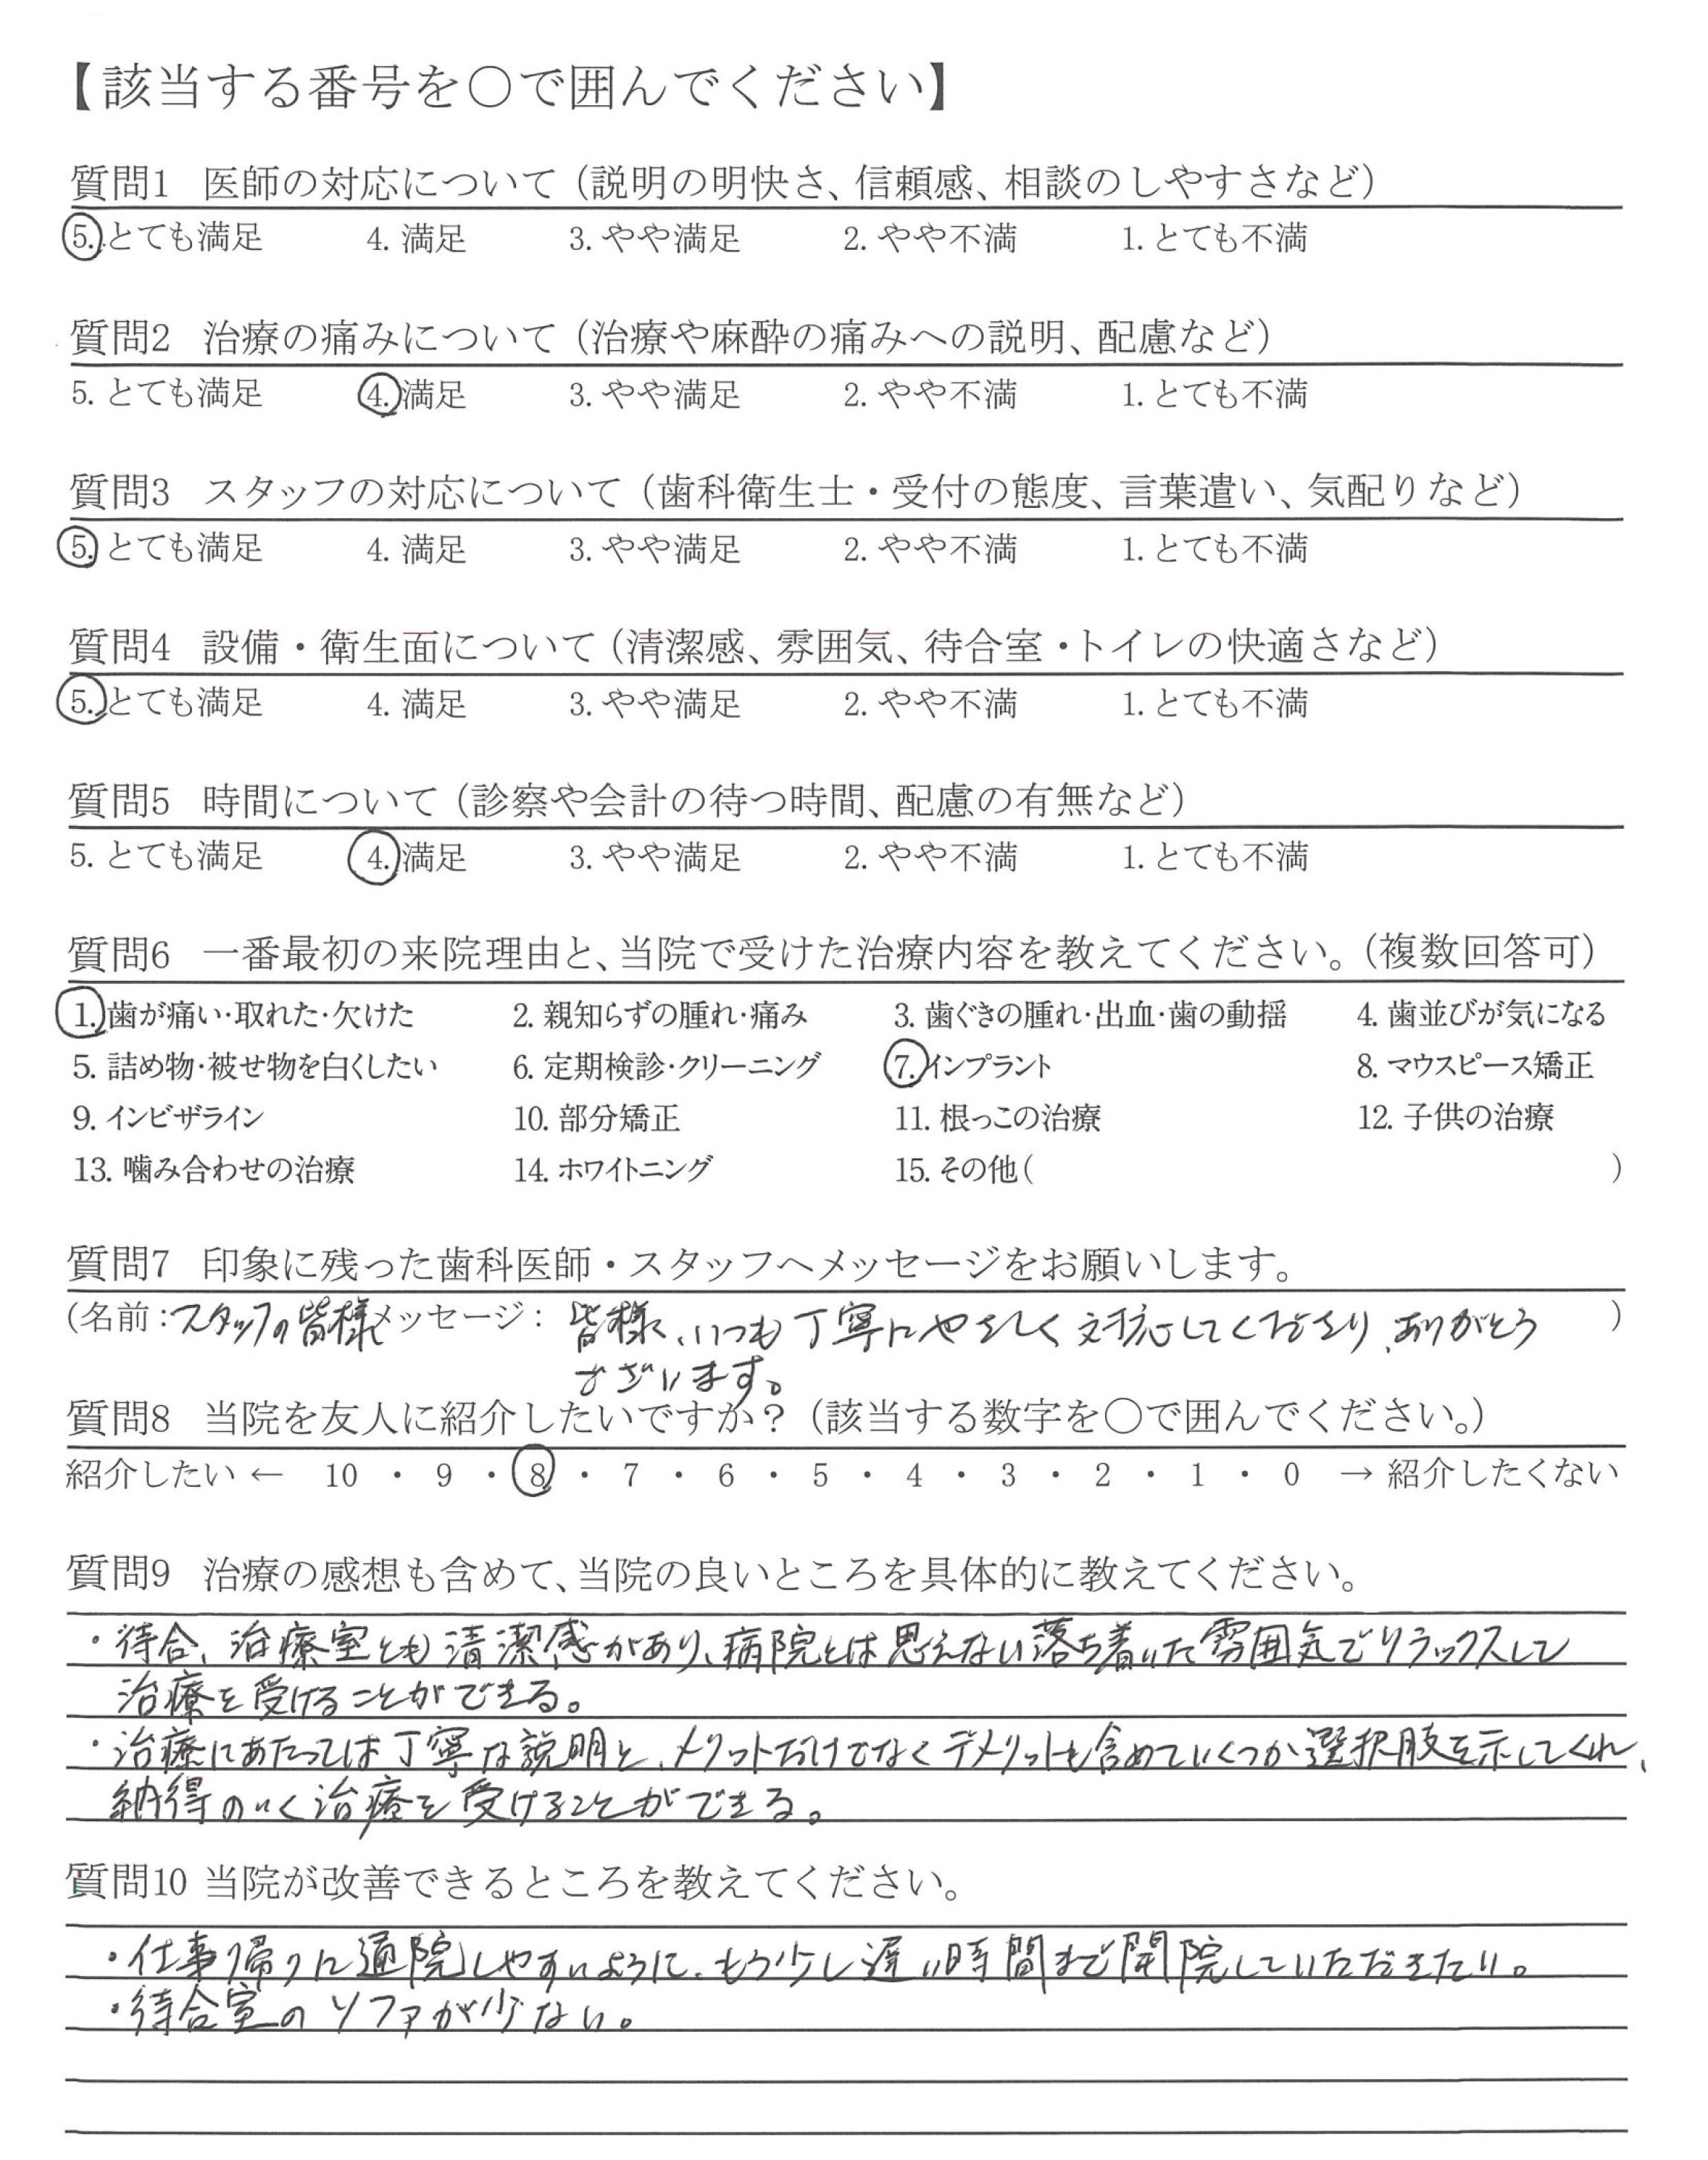 【該当する番号を○で囲んでください】
質問1 医師の対応について（説明の明快さ、信頼感、相談のしやすさなど）
5. とても満足 4. 満足 3. やや満足 2. やや不満 1. とても不満
質問2 治療の痛みについて（治療や麻酔の痛みへの説明、配慮など）
5. とても満足 4. 満足 3. やや満足 2. やや不満 1. とても不満
質問3 スタッフの対応について（歯科衛生士・受付の態度、言葉遣い、気配りなど）
5. とても満足 4. 満足 3. やや満足 2. やや不満 1. とても不満
質問4 設備・衛生面について（清潔感、雰囲気、待合室・トイレの快適さなど）
5. とても満足 4. 満足 3. やや満足 2. やや不満 1. とても不満
質問5 時間について（診察や会計の待つ時間、配慮の有無など）
5. とても満足 4. 満足 3. やや満足 2. やや不満 1. とても不満
質問6 一番最初の来院理由と、当院で受けた治療内容を教えてください。（複数回答可）
1. 歯が痛い・取れた・欠けた 2. 親知らずの腫れ・痛み 3. 歯ぐきの腫れ・出血・歯の動揺 4. 歯並びが気になる
5. 詰め物・被せ物を白くしたい 6. 定期検診・クリーニング 7. インプラント 8. マウスピース矯正
9. インビザライン 10. 部分矯正 11. 根っこの治療 12. 子供の治療
13. 噛み合わせの治療 14. ホワイトニング 15. その他（ ）
質問7 印象に残った歯科医師・スタッフへメッセージをお願いします。
（名前：スタッフの皆様 メッセージ： 皆様、いつも丁寧にやさしく対応してくださり、ありがとう ）
ございます。
質問8 当院を友人に紹介したいですか？（該当する数字を○で囲んでください。）
紹介したい ← 10 ・ 9 ・ 8 ・ 7 ・ 6 ・ 5 ・ 4 ・ 3 ・ 2 ・ 1 ・ 0 → 紹介したくない
質問9 治療の感想も含めて、当院の良いところを具体的に教えてください。
・待合、治療室とも清潔感があり、病院とは思えない落ち着いた雰囲気でリラックスして
治療を受けることができる。
・治療にあたっては丁寧な説明と、メリットだけでなくデメリットも含めていくつか選択肢を示してくれ、
納得のいく治療を受けることができる。
質問10 当院が改善できるところを教えてください。
・仕事帰りに通院しやすいように、もう少し遅い時間まで開院していただきたい。
・待合室のソファが少ない。